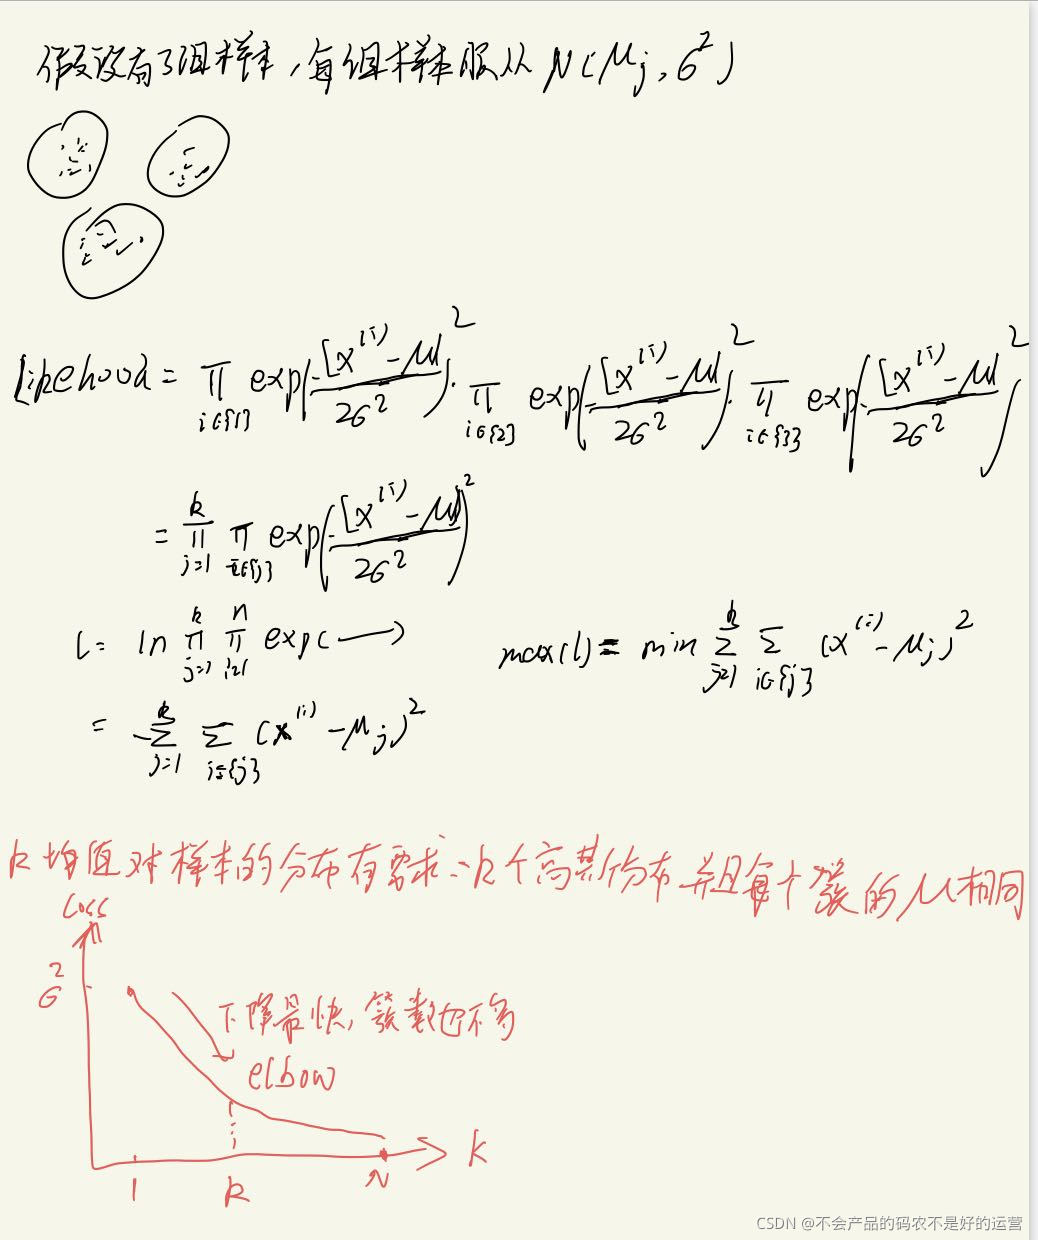 假设有3组样本,每组样本服从 N(μj, σ²)
likehood = π i∈{1} exp(-[x⁽ⁱ⁾-μ]²/2σ²)·π i∈{2} exp(-[x⁽ⁱ⁾-μ]²/2σ²)·π i∈{3} exp(-[x⁽ⁱ⁾-μ]²/2σ²)
= π j=1 k π i∈{j} exp(-[x⁽ⁱ⁾-μ]²/2σ²)
l = ln π j=1 k π i=1 n exp(—)
max(l) = min Σ j=1 k Σ i∈{j} (x⁽ⁱ⁾-μj)²
= -Σ j=1 k Σ i∈{j} (x⁽ⁱ⁾-μj)²
k均值对样本的分布有需求:k个高斯分布并且每个簇的μ相同
Loss
σ²
下降最快,簇数也不多
elbow
k
1 k N
CSDN @不会产品的码农不是好的运营